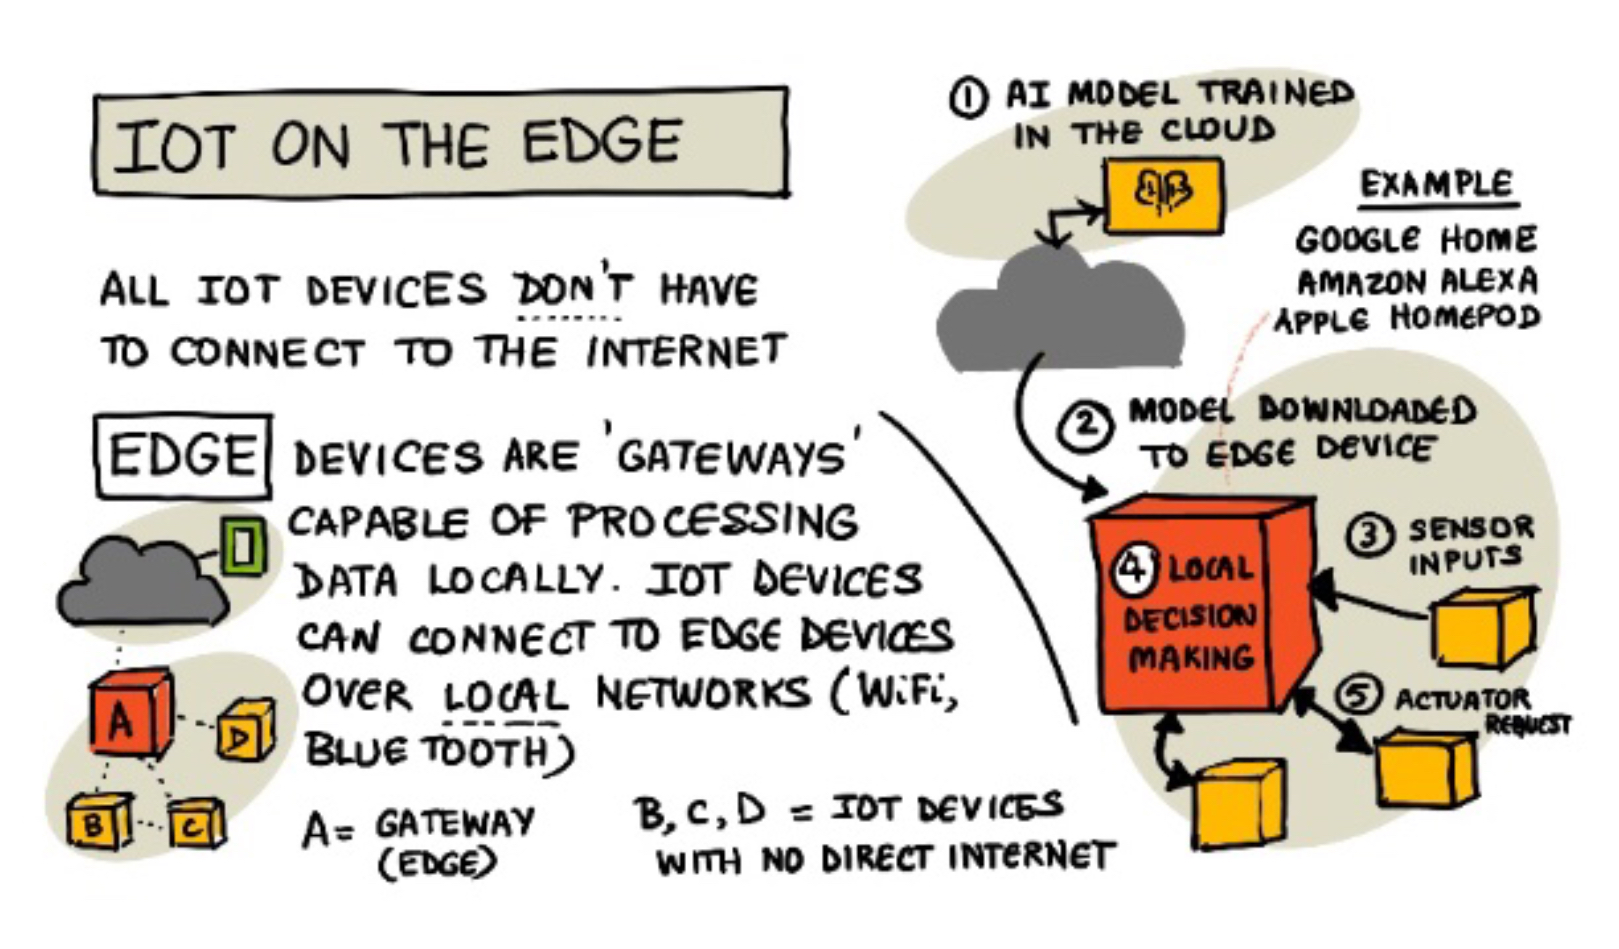 IOT ON THE EDGE
ALL IOT DEVICES DON'T HAVE
TO CONNECT TO THE INTERNET
EDGE DEVICES ARE 'GATEWAYS'
CAPABLE OF PROCESSING
DATA LOCALLY. IOT DEVICES
CAN CONNECT TO EDGE DEVICES
OVER LOCAL NETWORKS (WiFi,
BLUETOOTH)
A
D
B
C
A= GATEWAY
(EDGE)
B, C, D = IOT DEVICES
WITH NO DIRECT INTERNET
① AI MODEL TRAINED
IN THE CLOUD
EXAMPLE
GOOGLE HOME
AMAZON ALEXA
APPLE HOMEPOD
② MODEL DOWNLOADED
TO EDGE DEVICE
③ SENSOR
INPUTS
④ LOCAL
DECISION
MAKING
⑤ ACTUATOR
REQUEST